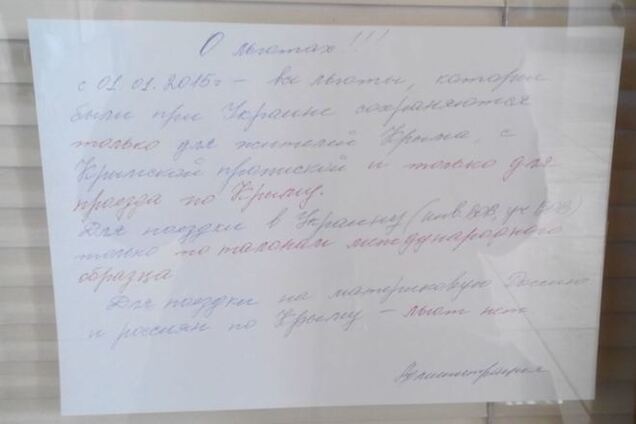 О льготах!!!
с 01.01.2015г – все льготы, которые
были при Украине сохраняются
только для жителей Крыма, с
Крымской пропиской и только для
проезда по Крыму.
Для поездки в Украину (инв. ВОВ, уч ВОВ)
только по талонам международного
образца
Для поездки на материковую Россию
и россиян по Крыму – льгот нет
Администрация